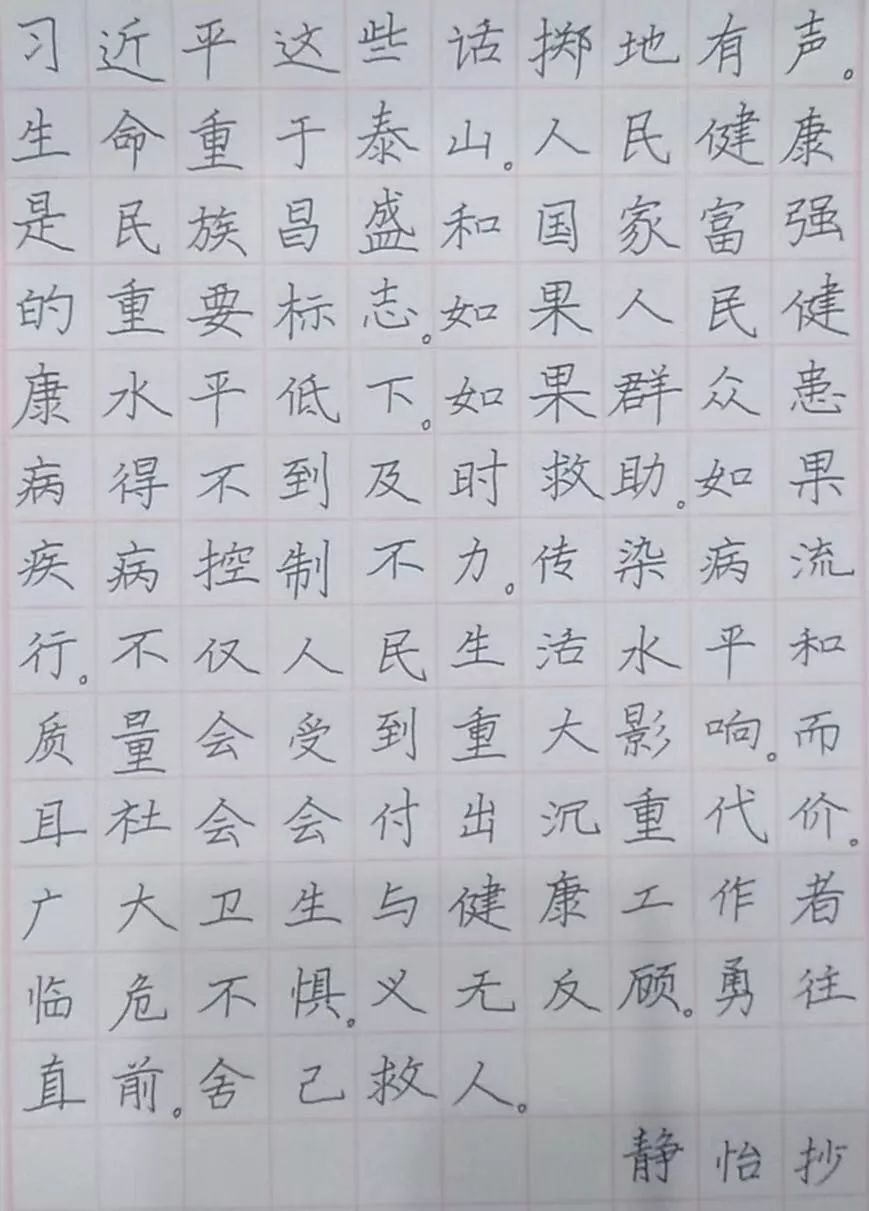 习近平这些话掷地有声。
生命重于泰山。人民健康
是民族昌盛和国家富强
的重要标志。如果人民健
康水平低下。如果群众患
病得不到及时救助。如果
疾病控制不力。传染病流
行。不仅人民生活水平和
质量会受到重大影响。而
且社会会付出沉重代价。
广大卫生与健康工作者
临危不惧。义无反顾。勇往
直前。舍己救人。
静怡抄